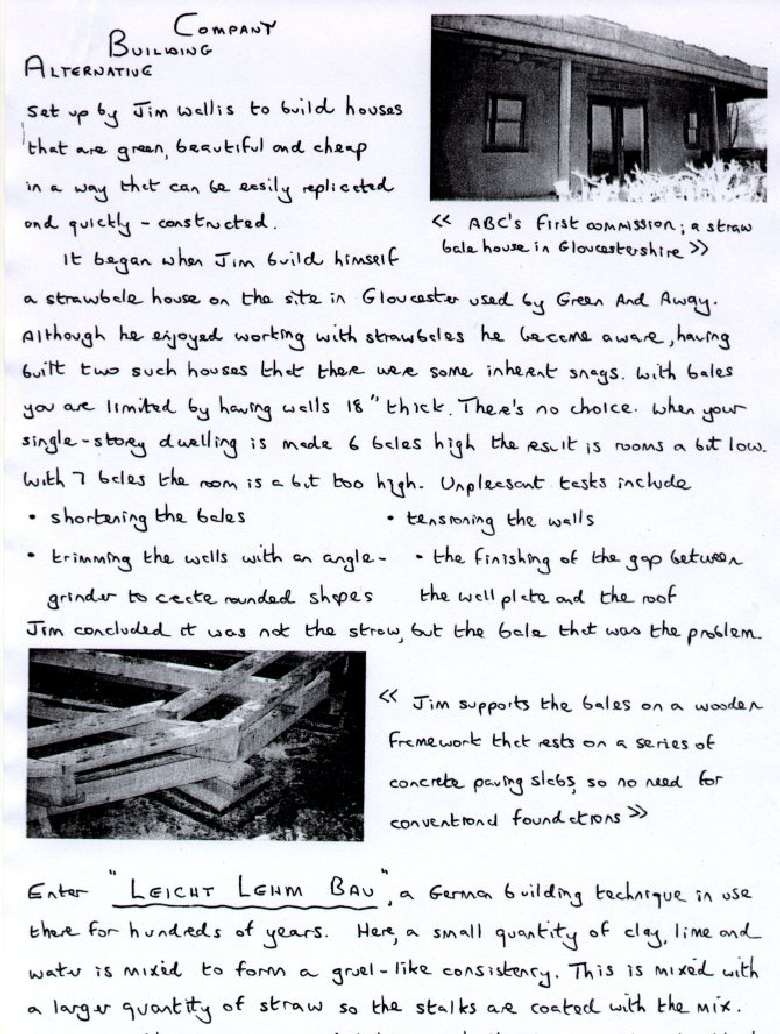 COMPANY
BUILDING
ALTERNATIVE
Set up by Jim Wallis to build houses
that are green, beautiful and cheap
in a way that can be easily replicated
and quickly - constructed.
<< ABC's first commission; a straw
bale house in Gloucestershire >>
It began when Jim build himself
a strawbale house on the site in Gloucester used by Green And Away.
Although he enjoyed working with strawbales he became aware, having
built two such houses that there were some inherent snags. With bales
you are limited by having walls 18" thick. There's no choice. When your
single-story dwelling is made 6 bales high the result is rooms a bit low.
With 7 bales the room is a bit too high. Unpleasant tasks include
• shortening the bales
• tensioning the walls
• trimming the walls with an angle-
grinder to create rounded shapes
• the finishing of the gap between
the wall plate and the roof
Jim concluded it was not the straw, but the bale that was the problem.
<< Jim supports the bales on a wooden
framework that rests on a series of
concrete paving slabs, so no need for
conventional foundations >>
Enter "LEICHT LEHM BAU", a German building technique in use
there for hundreds of years. Here, a small quantity of clay, lime and
water is mixed to form a gruel-like consistency. This is mixed with
a larger quantity of straw so the stalks are coated with the mix.